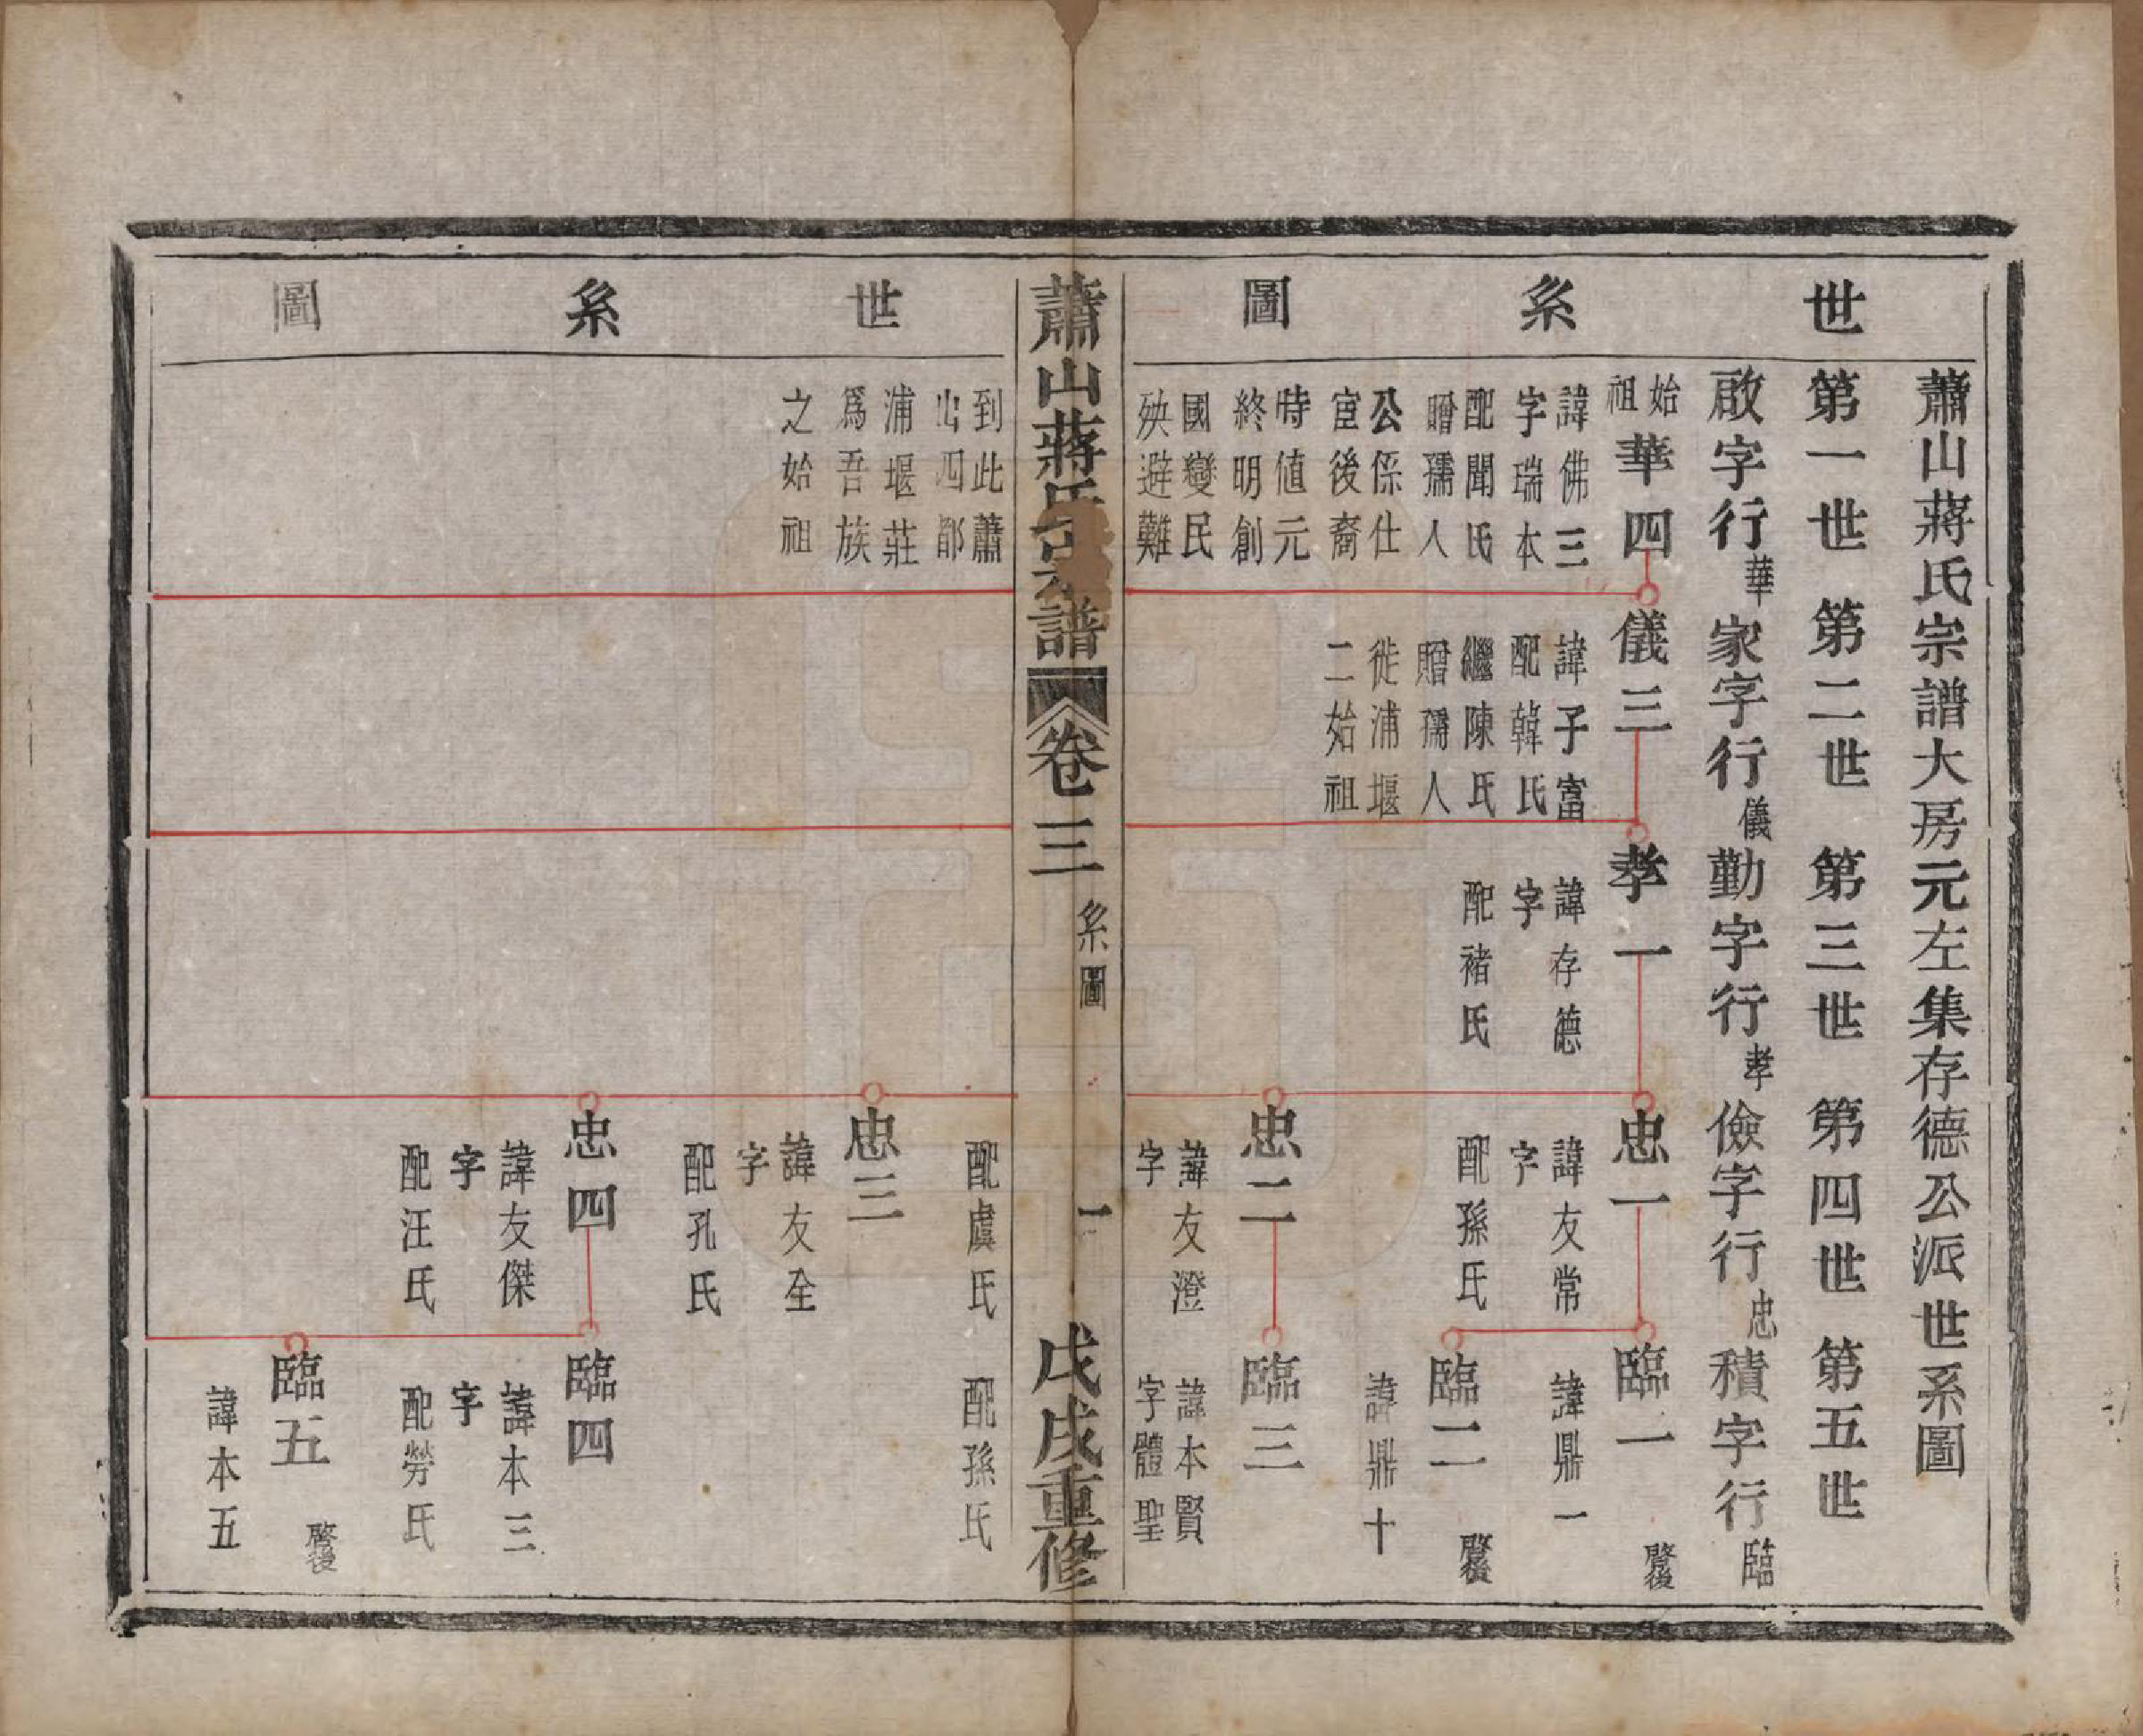 世系圖
蕭山蔣氏宗譜大房元左集存德公派世系圖
第一世 第二世 第三世 第四世 第五世
啟字行華 家字行儀 勤字行孝 儉字行忠 積字行臨
始祖
華四
諱佛三
字瑞本
配聞氏
贈孺人
公係仕
宦後裔
時値元
終明創
國變民
殃避難
儀三
諱子富
配韓氏
繼陳氏
贈孺人
徙浦堰
二始祖
孝一
諱存德
字
配褚氏
忠一
諱友常
字
配孫氏
忠二
諱友澄
字
臨一
啓後
諱鼎一
臨二
啓後
諱鼎十
臨三
諱本賢
字體聖
蕭山蔣氏宗譜
卷三
系圖
一
戊戌重修
世系圖
到此蕭
山四都
浦堰莊
爲吾族
之始祖
配虞氏
忠三
諱友全
字
配孔氏
忠四
諱友傑
字
配汪氏
配孫氏
臨四
諱本三
字
配勞氏
臨五
啓後
諱本五